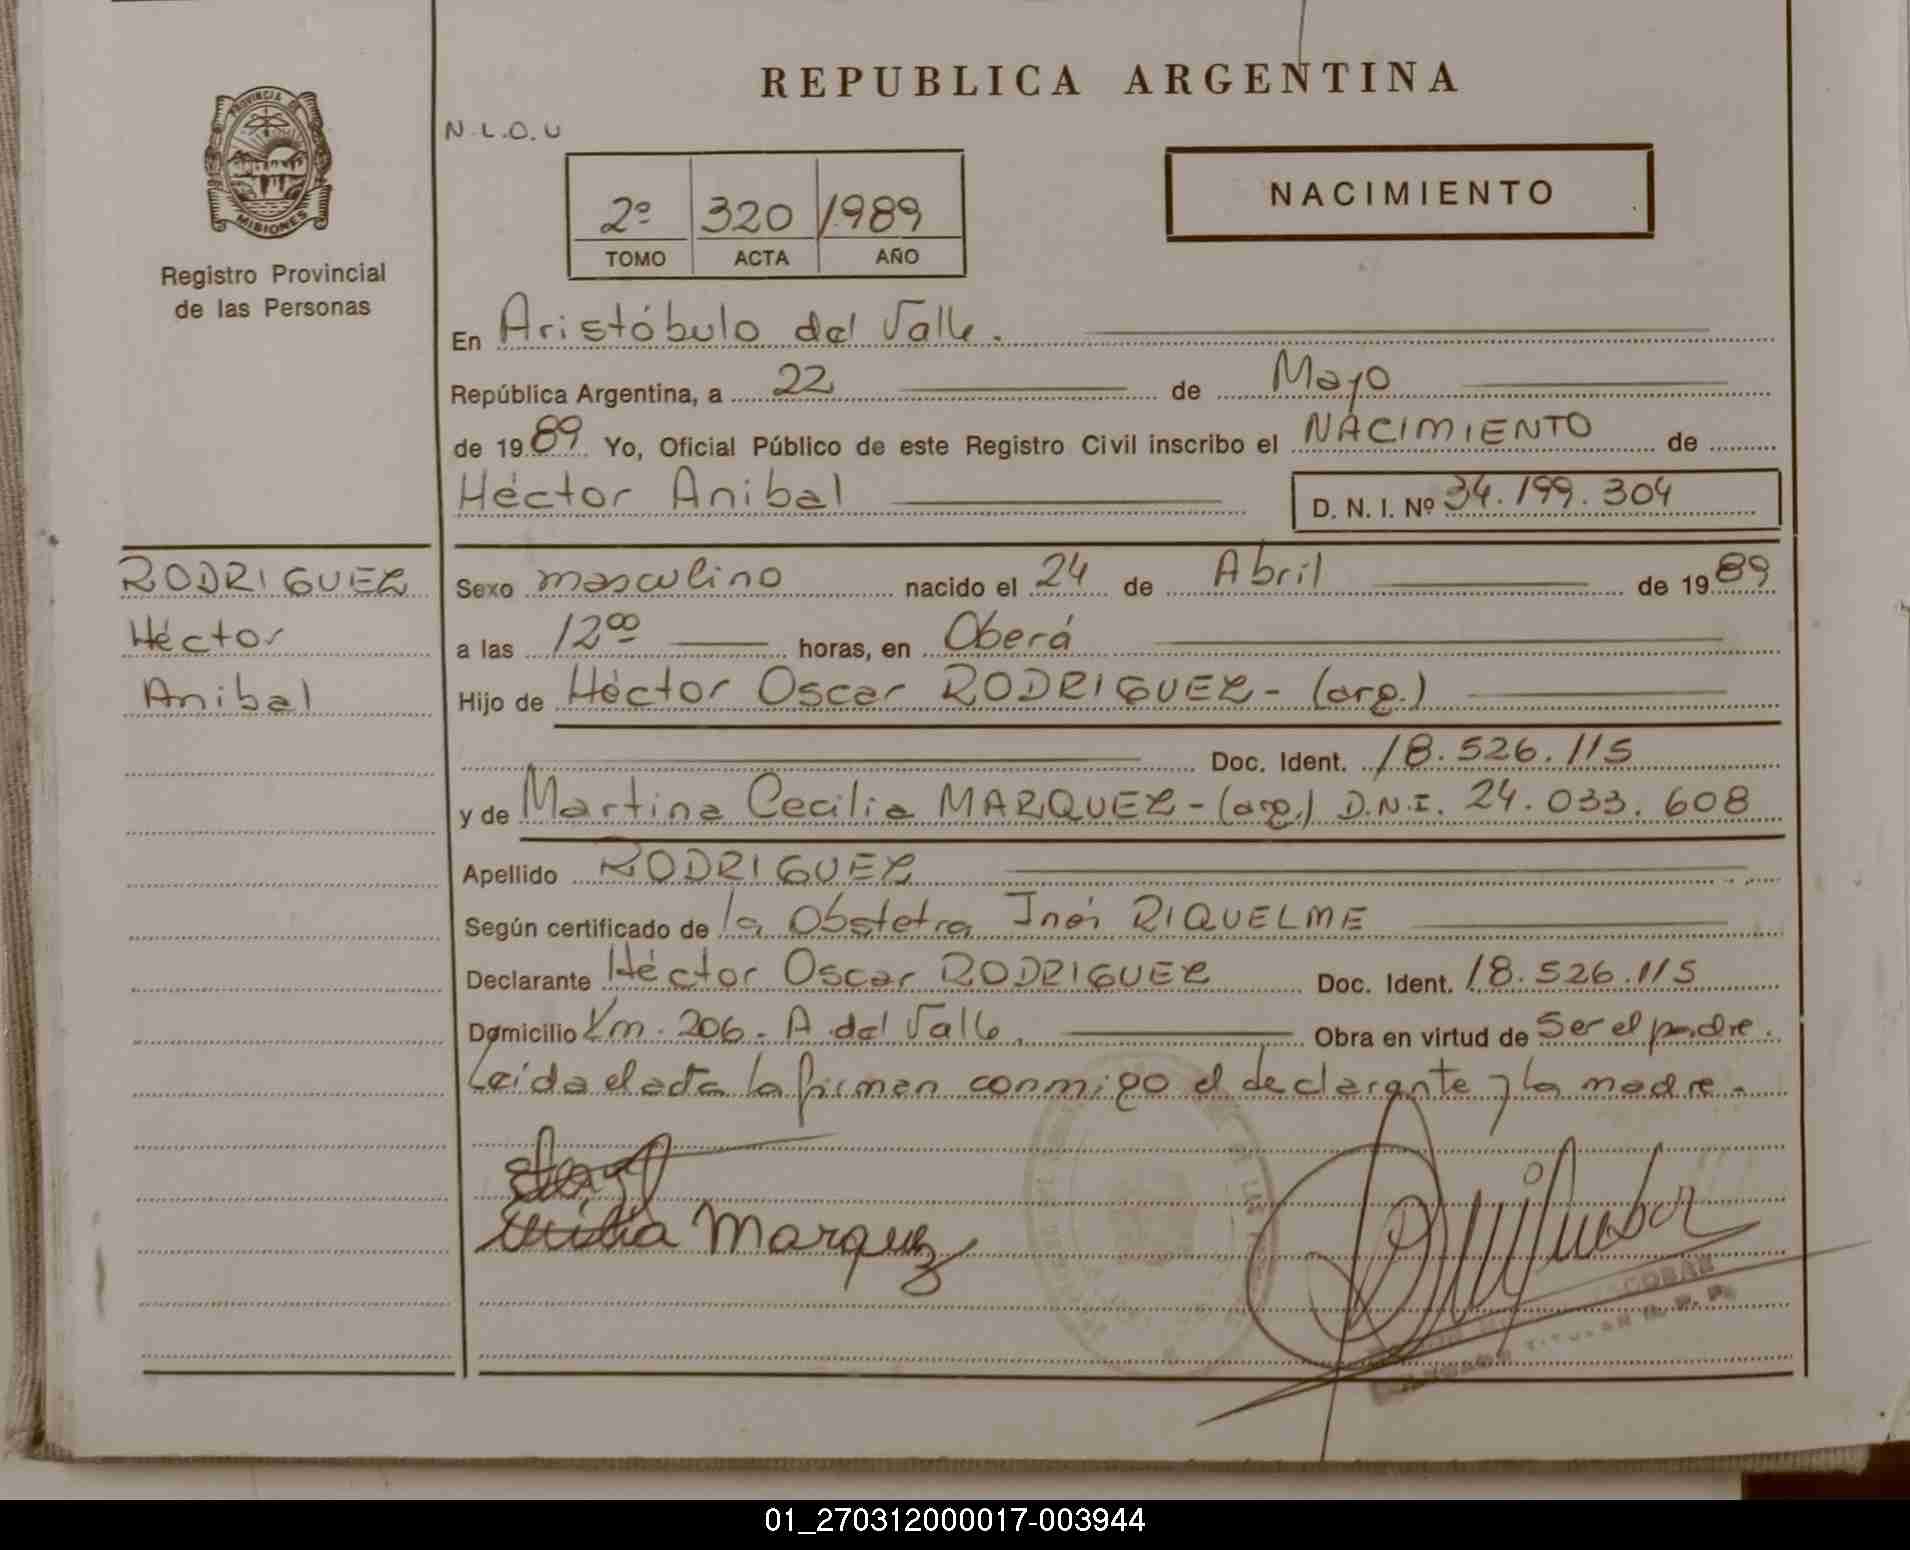 REPUBLICA ARGENTINA
N.L.O.U
PROVINCIA DE
MISIONES
Registro Provincial
de las Personas
2º 320 1989
TOMO ACTA AÑO
NACIMIENTO
En Aristóbulo del Valle.
República Argentina, a 22 de Mayo
de 1989 Yo, Oficial Público de este Registro Civil inscribo el NACIMIENTO de
Héctor Anibal D. N. I. Nº 34.199.304
RODRIGUEZ
Héctor
Anibal
Sexo masculino nacido el 24 de Abril de 1989
a las 12⁰⁰ horas, en Oberá
Hijo de Héctor Oscar RODRIGUEZ - (arg.)
Doc. Ident. 18.526.115
y de Martina Cecilia MARQUEZ - (arg.) D.N.I. 24.033.608
Apellido RODRIGUEZ
Según certificado de la Obstetra Inés RIQUELME
Declarante Héctor Oscar RODRIGUEZ Doc. Ident. 18.526.115
Domicilio Km. 206 - A del Valle. Obra en virtud de Ser el padre.
Leída el acta la firman conmigo el declarante y la madre.
Marquez
TITULAR R. P. P.
01_270312000017-003944